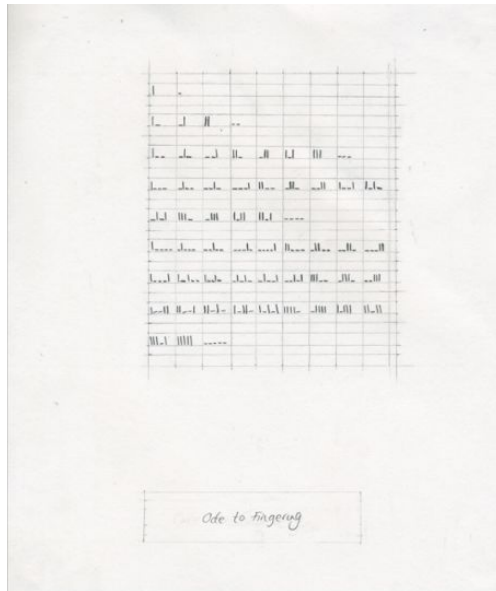 Ode to Fingering